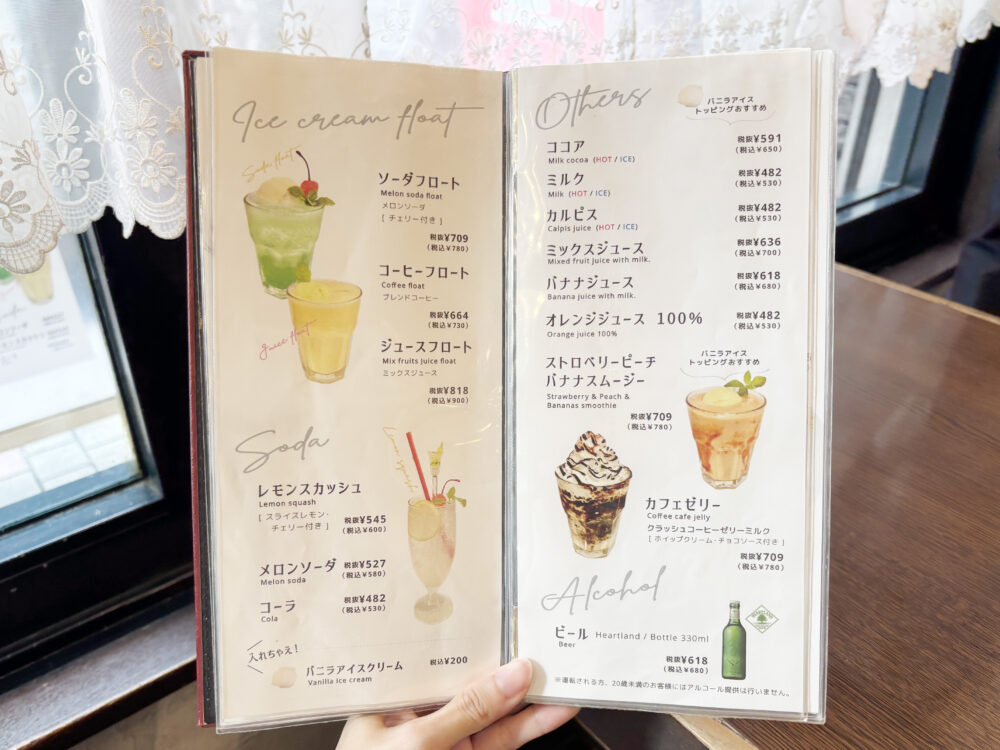 Ice cream float
Soda float
ソーダフロート
Melon soda float
メロンソーダ
[ チェリー付き ]
税抜¥709
(税込¥780)
コーヒーフロート
Coffee float
ブレンドコーヒー
税抜¥664
(税込¥730)
Juice float
ジュースフロート
Mix fruits Juice float
ミックスジュース
税抜¥818
(税込¥900)
Soda
レモンスカッシュ
Lemon squash
[ スライスレモン・
チェリー付き ]
税抜¥545
(税込¥600)
Lemon squash
メロンソーダ 税抜¥527
Melon soda (税込¥580)
コーラ 税抜¥482
Cola (税込¥530)
入れちゃえ!
バニラアイスクリーム 税込¥200
Vanilla Ice cream
Others
バニラアイス
トッピングおすすめ
ココア 税抜¥591
Milk cocoa (HOT / ICE) (税込¥650)
ミルク 税抜¥482
Milk (HOT / ICE) (税込¥530)
カルピス 税抜¥482
Calpis juice (HOT / ICE) (税込¥530)
ミックスジュース 税抜¥636
Mixed fruit juice with milk. (税込¥700)
バナナジュース 税抜¥618
Banana juice with milk. (税込¥680)
オレンジジュース 100% 税抜¥482
Orange juice 100% (税込¥530)
ストロベリーピーチ
バナナスムージー
Strawberry & Peach &
Bananas smoothie
税抜¥709
(税込¥780)
バニラアイス
トッピングおすすめ
カフェゼリー
Coffee cafe jelly
クラッシュコーヒーゼリーミルク
[ ホイップクリーム・チョコソース付き ]
税抜¥709
(税込¥780)
Alcohol
ビール Heartland / Bottle 330ml
Beer
税抜¥618
(税込¥680)
※運転される方、20歳未満のお客様にはアルコール提供は行いません。